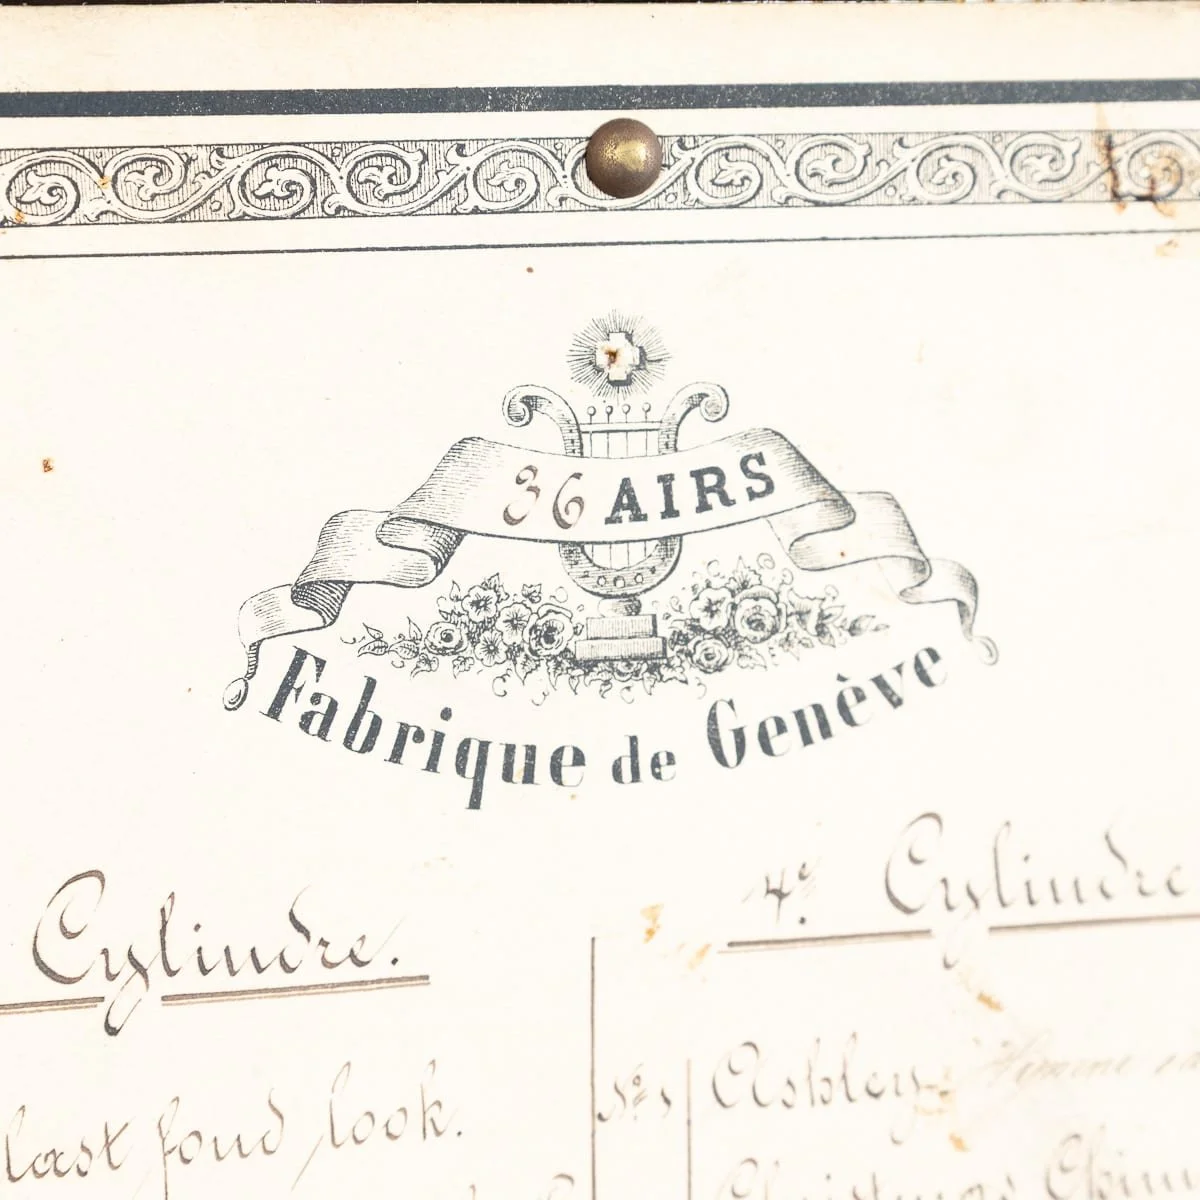 36 AIRS
Fabrique de Genève
Cylindre.
4e Cylindre
last fond look.
No 1 Ashley.
Christmas Chim